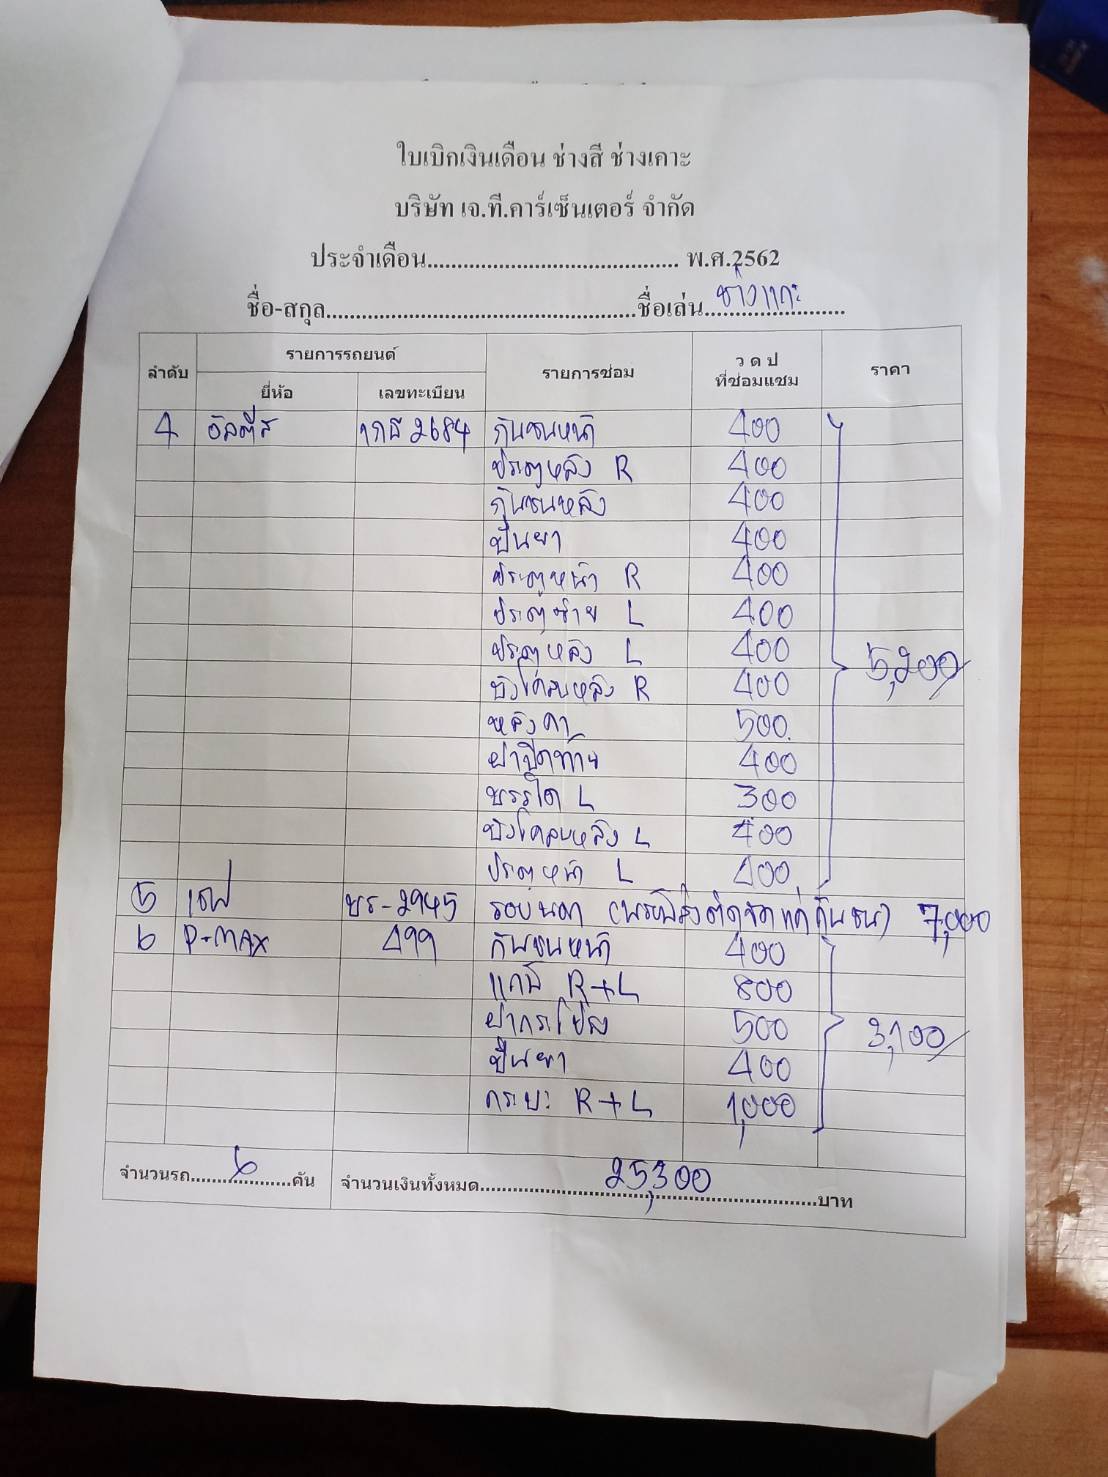 ใบเบิกเงินเดือน ช่างสี ช่างเคาะ
บริษัท เจ.ที.คาร์เซ็นเตอร์ จำกัด
ประจำเดือน........................................... พ.ศ.2562
ชื่อ-สกุล.....................................................ชื่อเล่น ช่างแกะ
ลำดับ รายการรถยนต์ รายการซ่อม ว ด ป ที่ซ่อมแซม ราคา
ยี่ห้อ เลขทะเบียน
4 อัลติส 1กธ 2684 กันชนหน้า 400
ประตูหลัง R 400
กันชนหลัง 400
ปืนยา 400
ประตูหน้า R 400
ประตูซ้าย L 400
ประตูหลัง L 400 5,200/
บังโคลนหลัง R 400
หลังคา 500
ฝาปิดท้าย 400
บรรได L 300
บังโคลนหลัง L 400
ประตูหน้า L 400
5 เชฟ ขร-2945 รอบนคา 7,000
6 D-MAX 499 กันชนหน้า 400
แกม้ R+L 800
ฝากระโปรง 500 3,100/
ปืนยา 400
กระบะ R+L 1,000
จำนวนรถ 6 คัน จำนวนเงินทั้งหมด 25,300 บาท